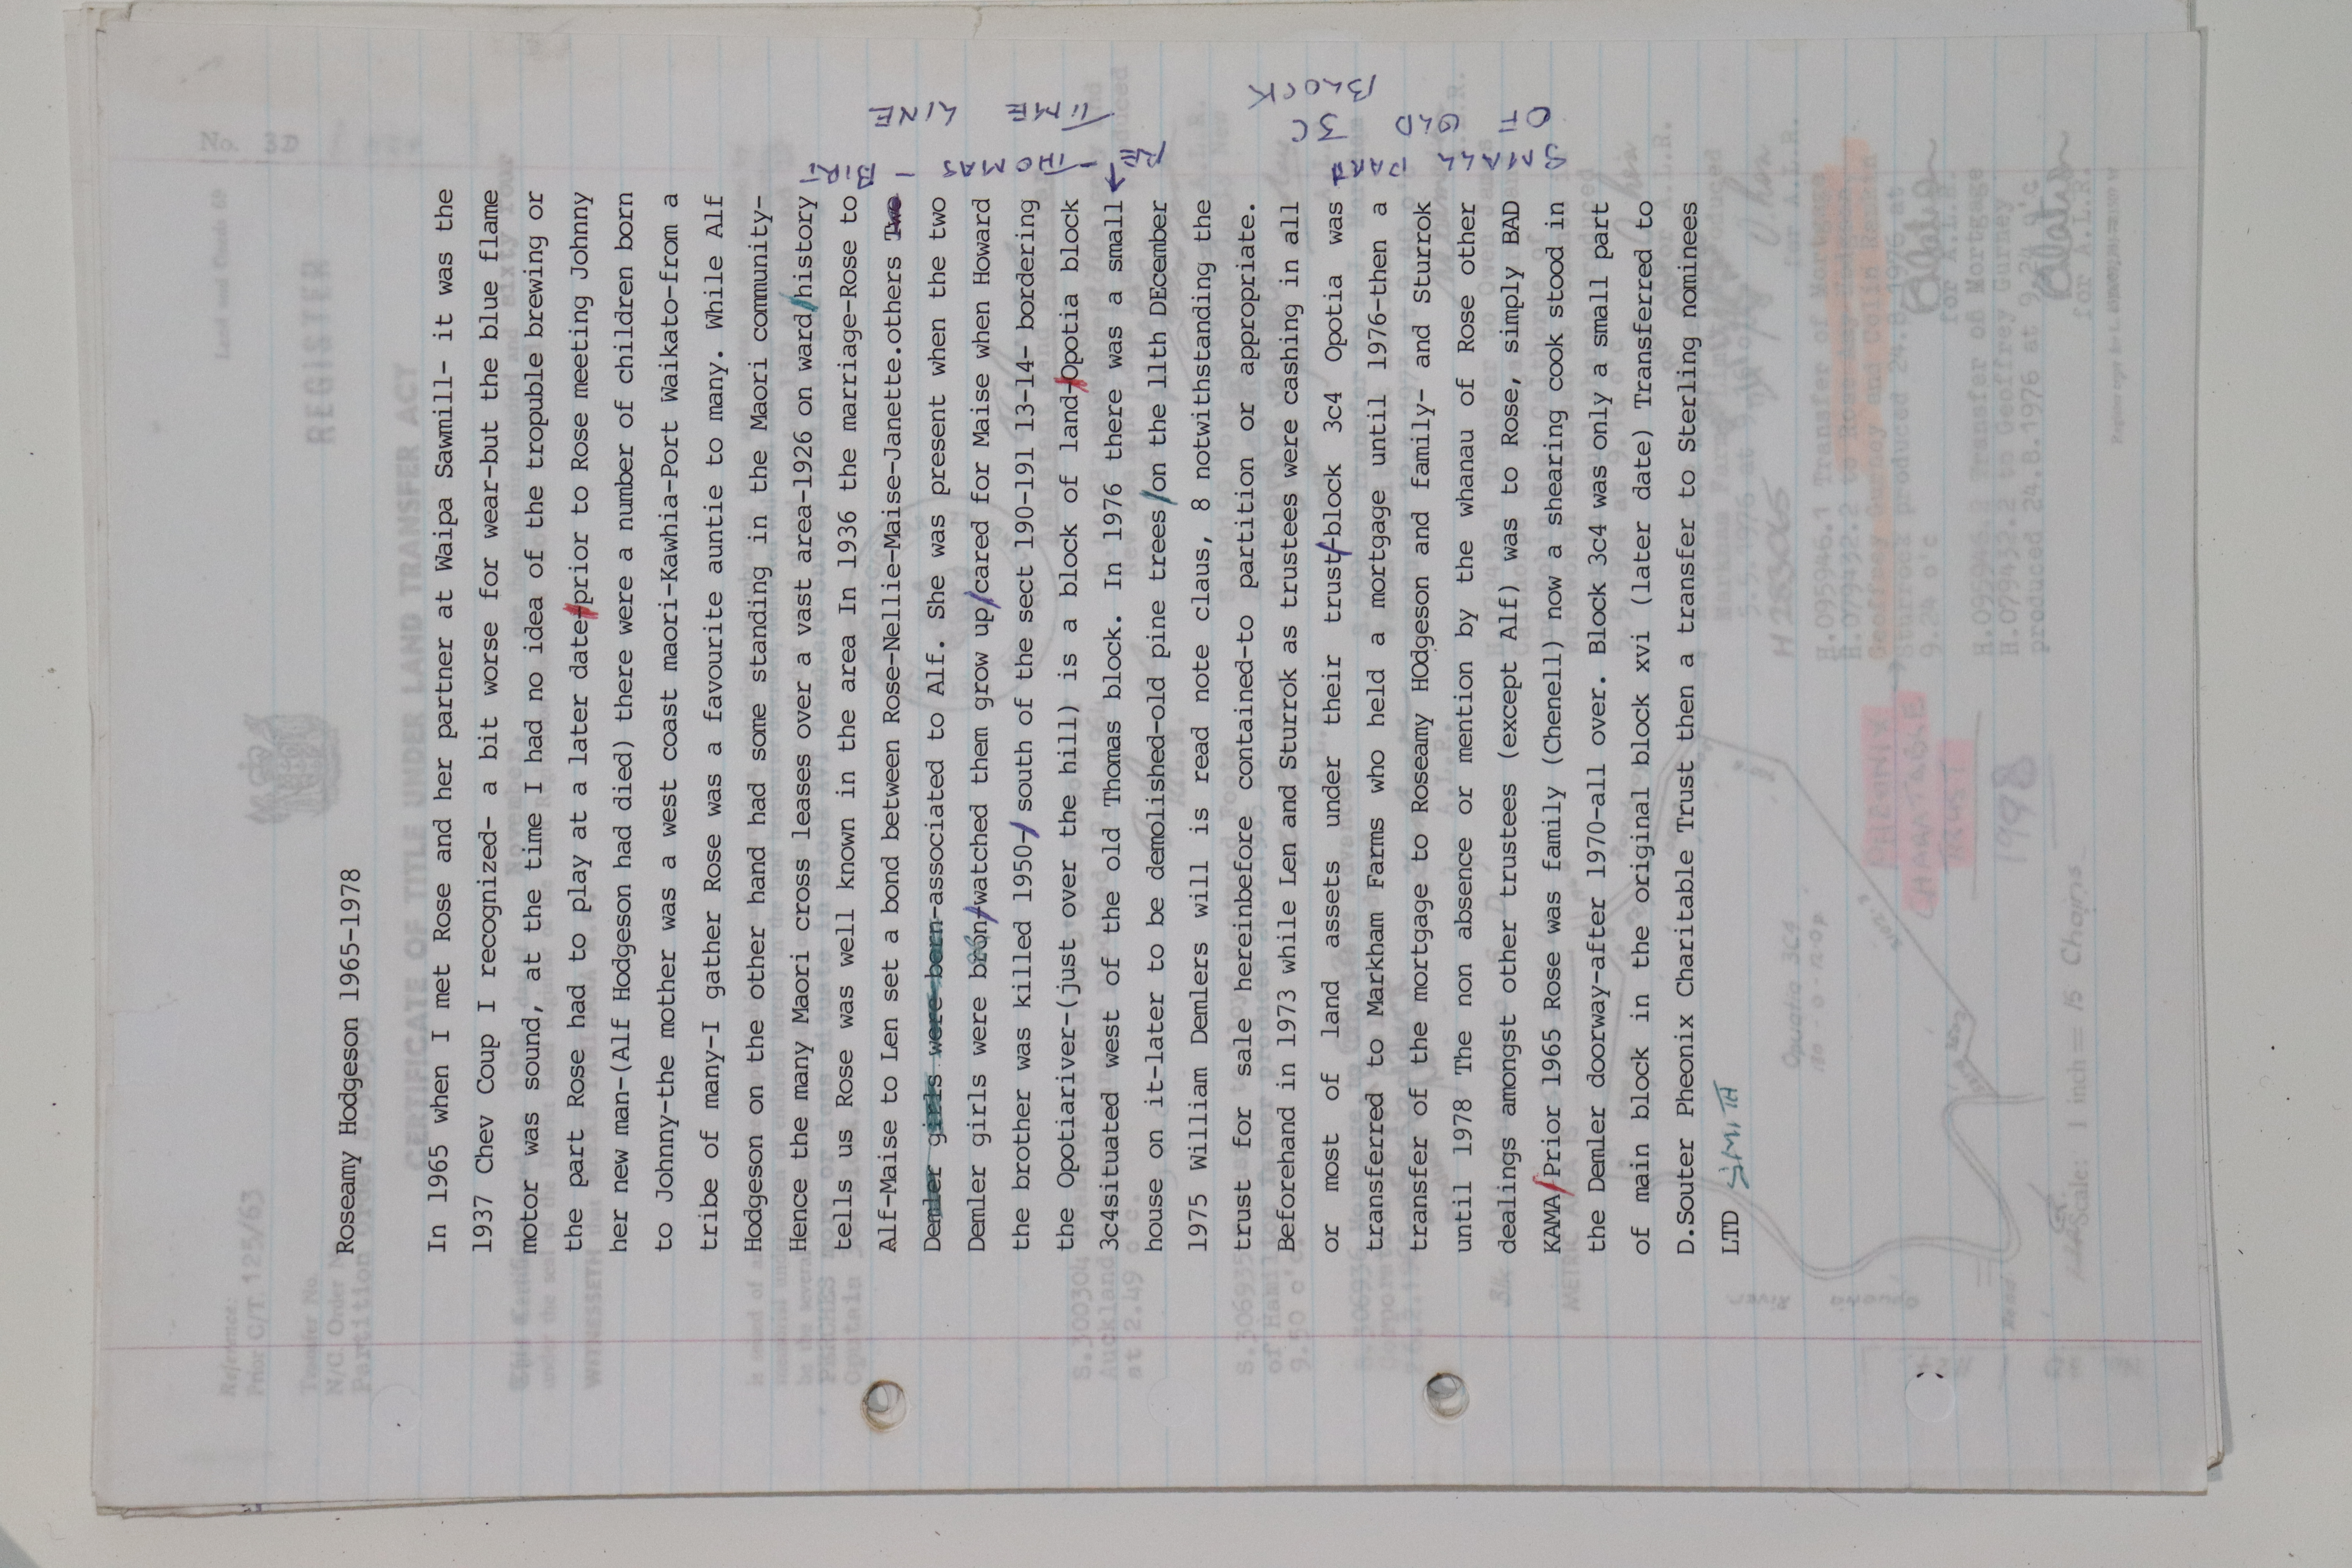 Roseamy Hodgeson 1965-1978
In 1965 when I met Rose and her partner at Waipa Sawmill- it was the
1937 Chev Coup I recognized- a bit worse for wear-but the blue flame
motor was sound, at the time I had no idea of the tropuble brewing or
the part Rose had to play at a later date-prior to Rose meeting Johnny
her new man-(Alf Hodgeson had died) there were a number of children born
to Johnny-the mother was a west coast maori-Kawhia-Port Waikato-from a
tribe of many-I gather Rose was a favourite auntie to many. While Alf
Hodgeson on the other hand had some standing in the Maori community-
Hence the many Maori cross leases over a vast area-1926 on ward/history
tells us Rose was well known in the area In 1936 the marriage-Rose to
Alf-Maise to Len set a bond between Rose-Nellie-Maise-Janette.others Two
Demler girls were born-associated to Alf. She was present when the two
Demler girls were bron/watched them grow up/cared for Maise when Howard
the brother was killed 1950-/south of the sect 190-191 13-14- bordering
the Opotiariver-(just over the hill) is a block of land-Opotia block
3c4situated west of the old Thomas block. In 1976 there was a small
house on it-later to be demolished-old pine trees/on the 11th DEcember
1975 William Demlers will is read note claus, 8 notwithstanding the
trust for sale hereinbefore contained-to partition or appropriate.
Beforehand in 1973 while Len and Sturrok as trustees were cashing in all
or most of land assets under their trust/block 3c4 Opotia was
transferred to Markham Farms who held a mortgage until 1976-then a
transfer of the mortgage to Roseamy HOdgeson and family- and Sturrok
until 1978 The non absence or mention by the whanau of Rose other
dealings amongst other trustees (except Alf) was to Rose, simply BAD
KAMA/Prior 1965 Rose was family (Chenell) now a shearing cook stood in
the Demler doorway-after 1970-all over. Block 3c4 was only a small part
of main block in the original block xvi (later date) Transferred to
D.Souter Pheonix Charitable Trust then a transfer to Sterling nominees
LTD SMITH
RE - THOMAS - BIRT
TIME LINE
SMALL PART
OF OLD 3C
BLOCK
No. 3D
Land and Deeds 69
REGISTER
CERTIFICATE OF TITLE UNDER LAND TRANSFER ACT
Reference:
Prior C/T. 125/63
Transfer No.
H.283065
H.095946.1 Transfer of Mortgage
Geoffrey Gurney and Colin Rankin
Sturrock produced 24.8.1976 at
9.24 o'c
for A.L.R.
H.079432.2 to Geoffrey Gurney
produced 24.8.1976 at 9.24 o'c
for A.L.R.
PHEONIX
CHARATABLE
TRUST
1998
Scale: 1 inch = 15 Chains